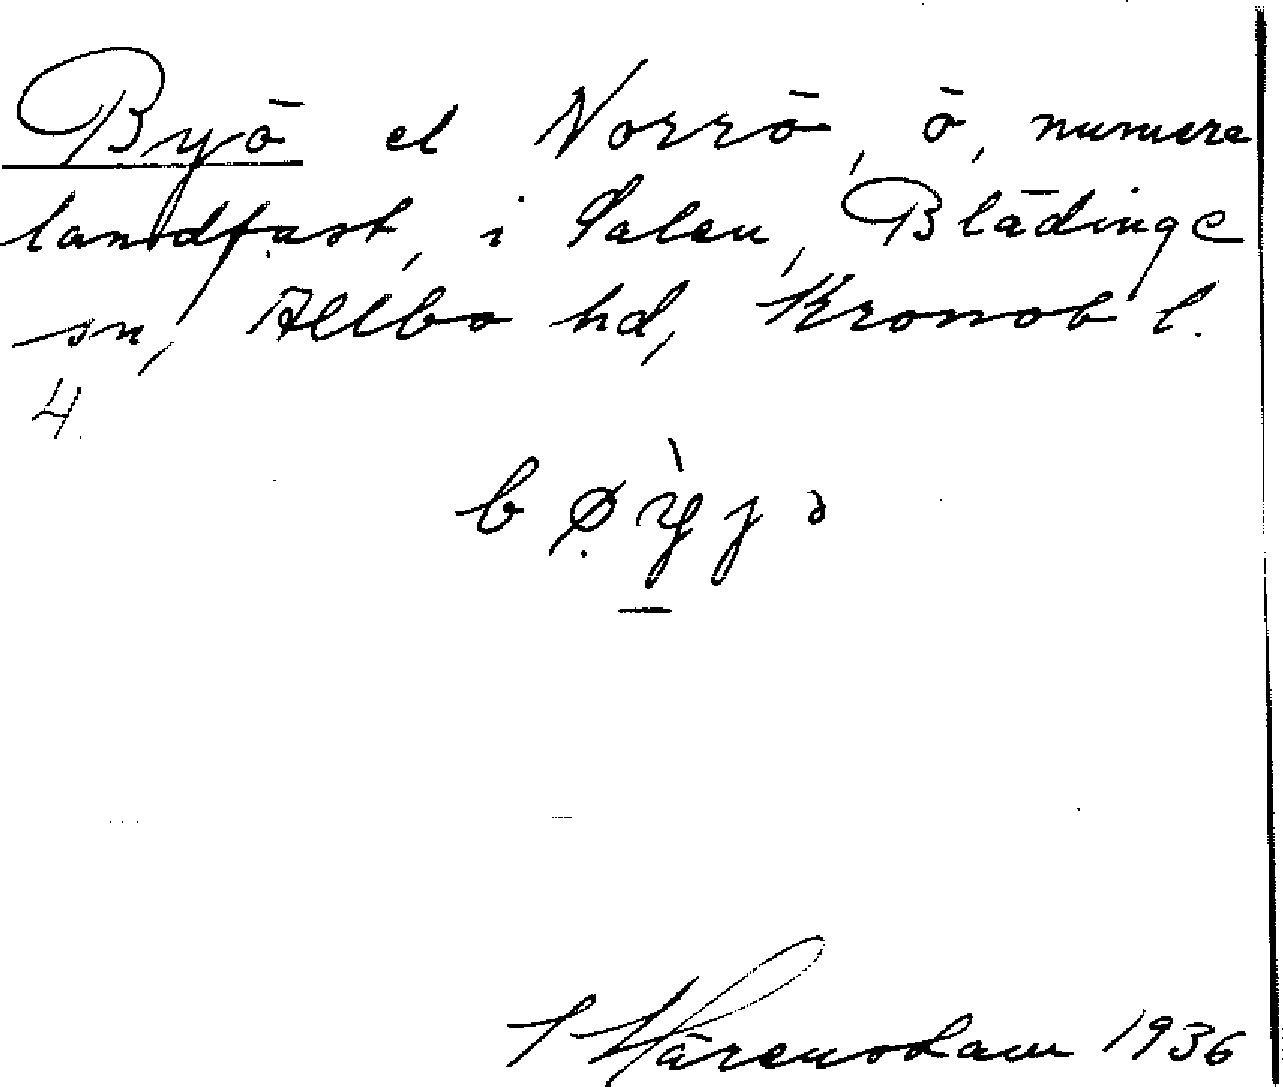 Byö el Norrö, ö, numera
landfast, i Salen, Blädinge
sn, Allbo hd, Kronob l.
4.
bø̣ỳjə
Härenstam 1936